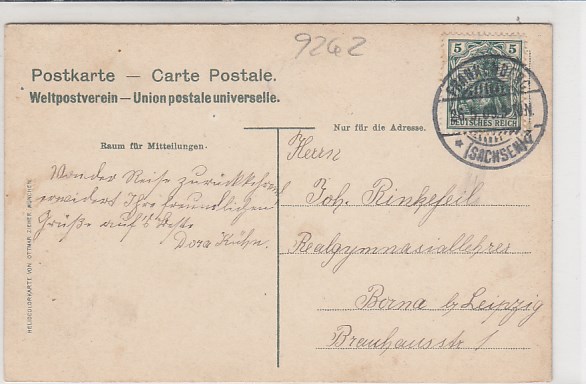 9262
Postkarte — Carte Postale.
Weltpostverein — Union postale universelle.
5 5
DEUTSCHES REICH
FRANKENBERG
(SACHSEN)
Nur für die Adresse.
Raum für Mitteilungen.
Von der Reise zurückkehrend
erwidert Ihre freundlichen
Grüße auf's Beste
Dora Kühn.
Herrn
Joh. Rinkefeil
Realgymnasiallehrer
Borna b/Leipzig
Brauhausstr 1
HELIOCOLORKARTE VON OTTMAR ZIEHER, MÜNCHEN